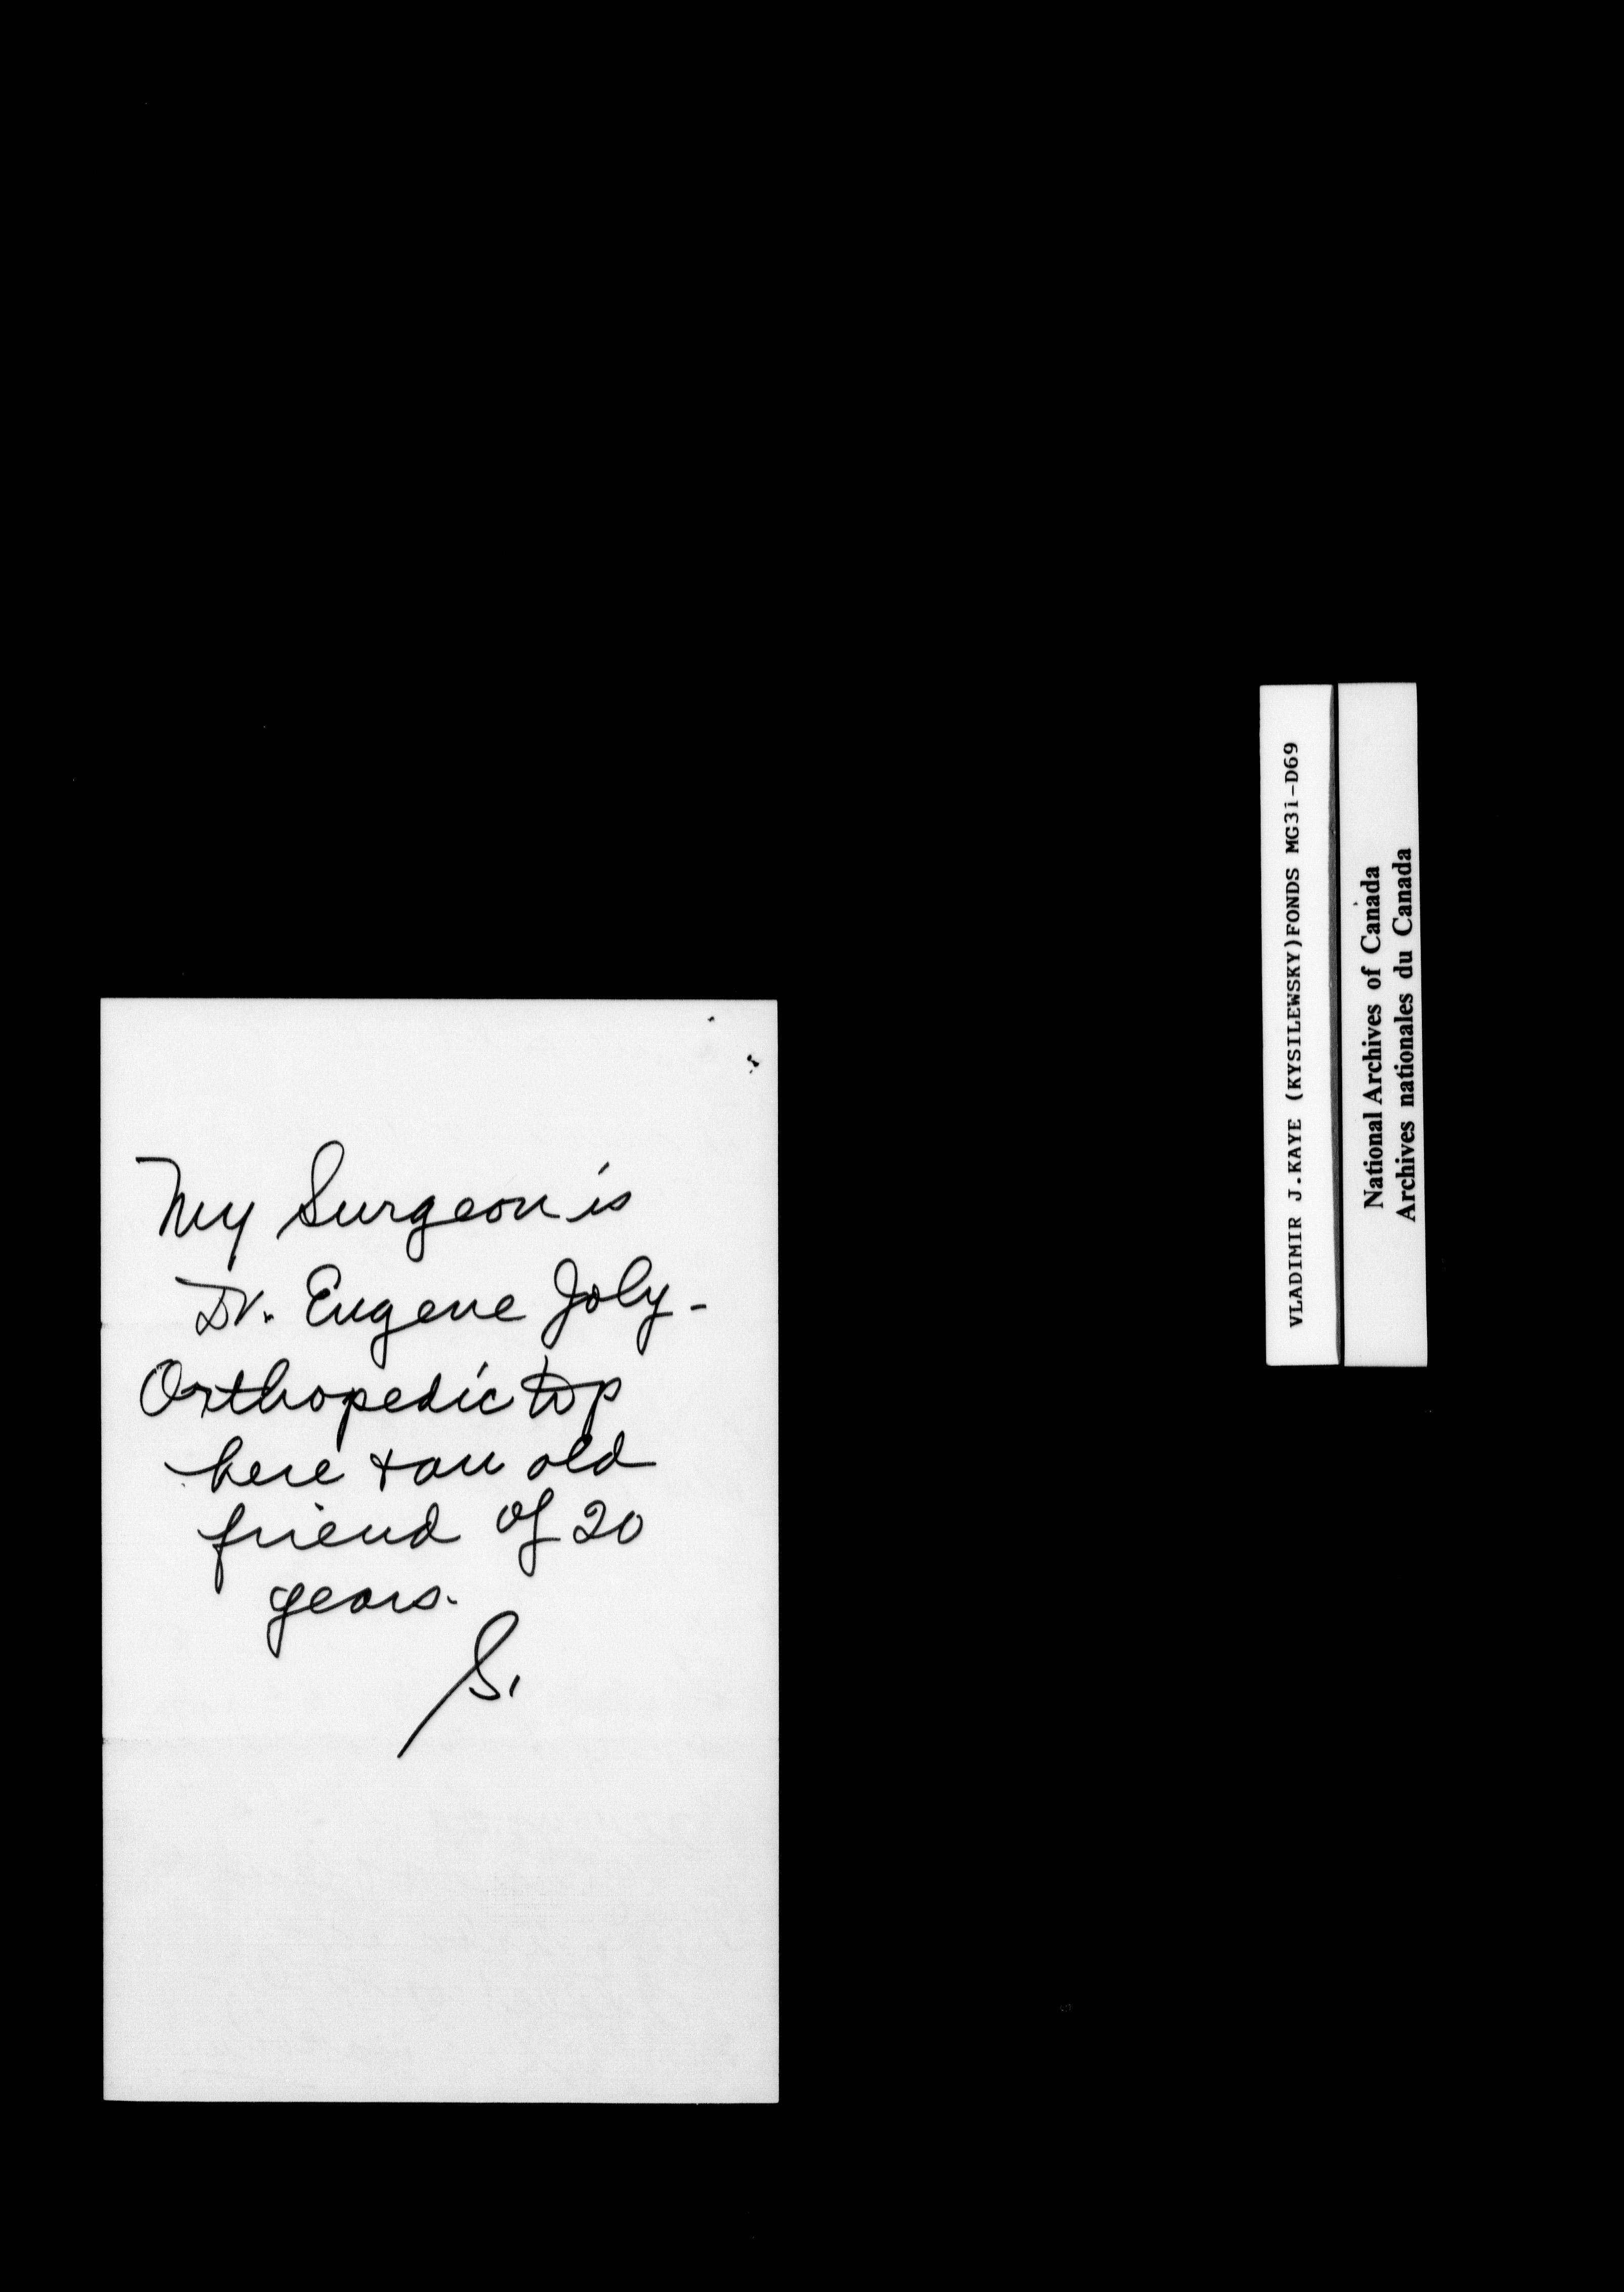 My Surgeon is
Dr. Eugene Joly -
Orthopedic top
here + an old
friend of 20
years.
S.
VLADIMIR J.KAYE (KYSILEWSKY)FONDS MG31-D69
National Archives of Canada
Archives nationales du Canada